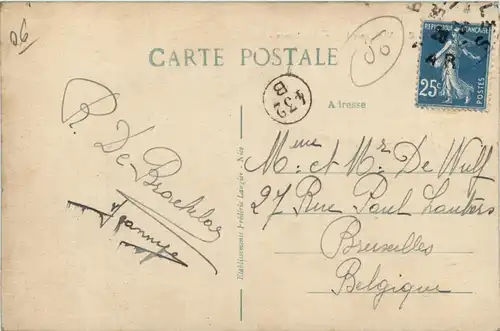 06
CARTE POSTALE
06
REPUBLIQUE FRANÇAISE
25c
POSTES
432
B
Adresse
R. De Broekelaer
Jeannye
Etablissements Frédéric Laugier - Nice
Mme et Mr De Wulf
27 Rue Paul Lauters
Bruxelles
Belgique